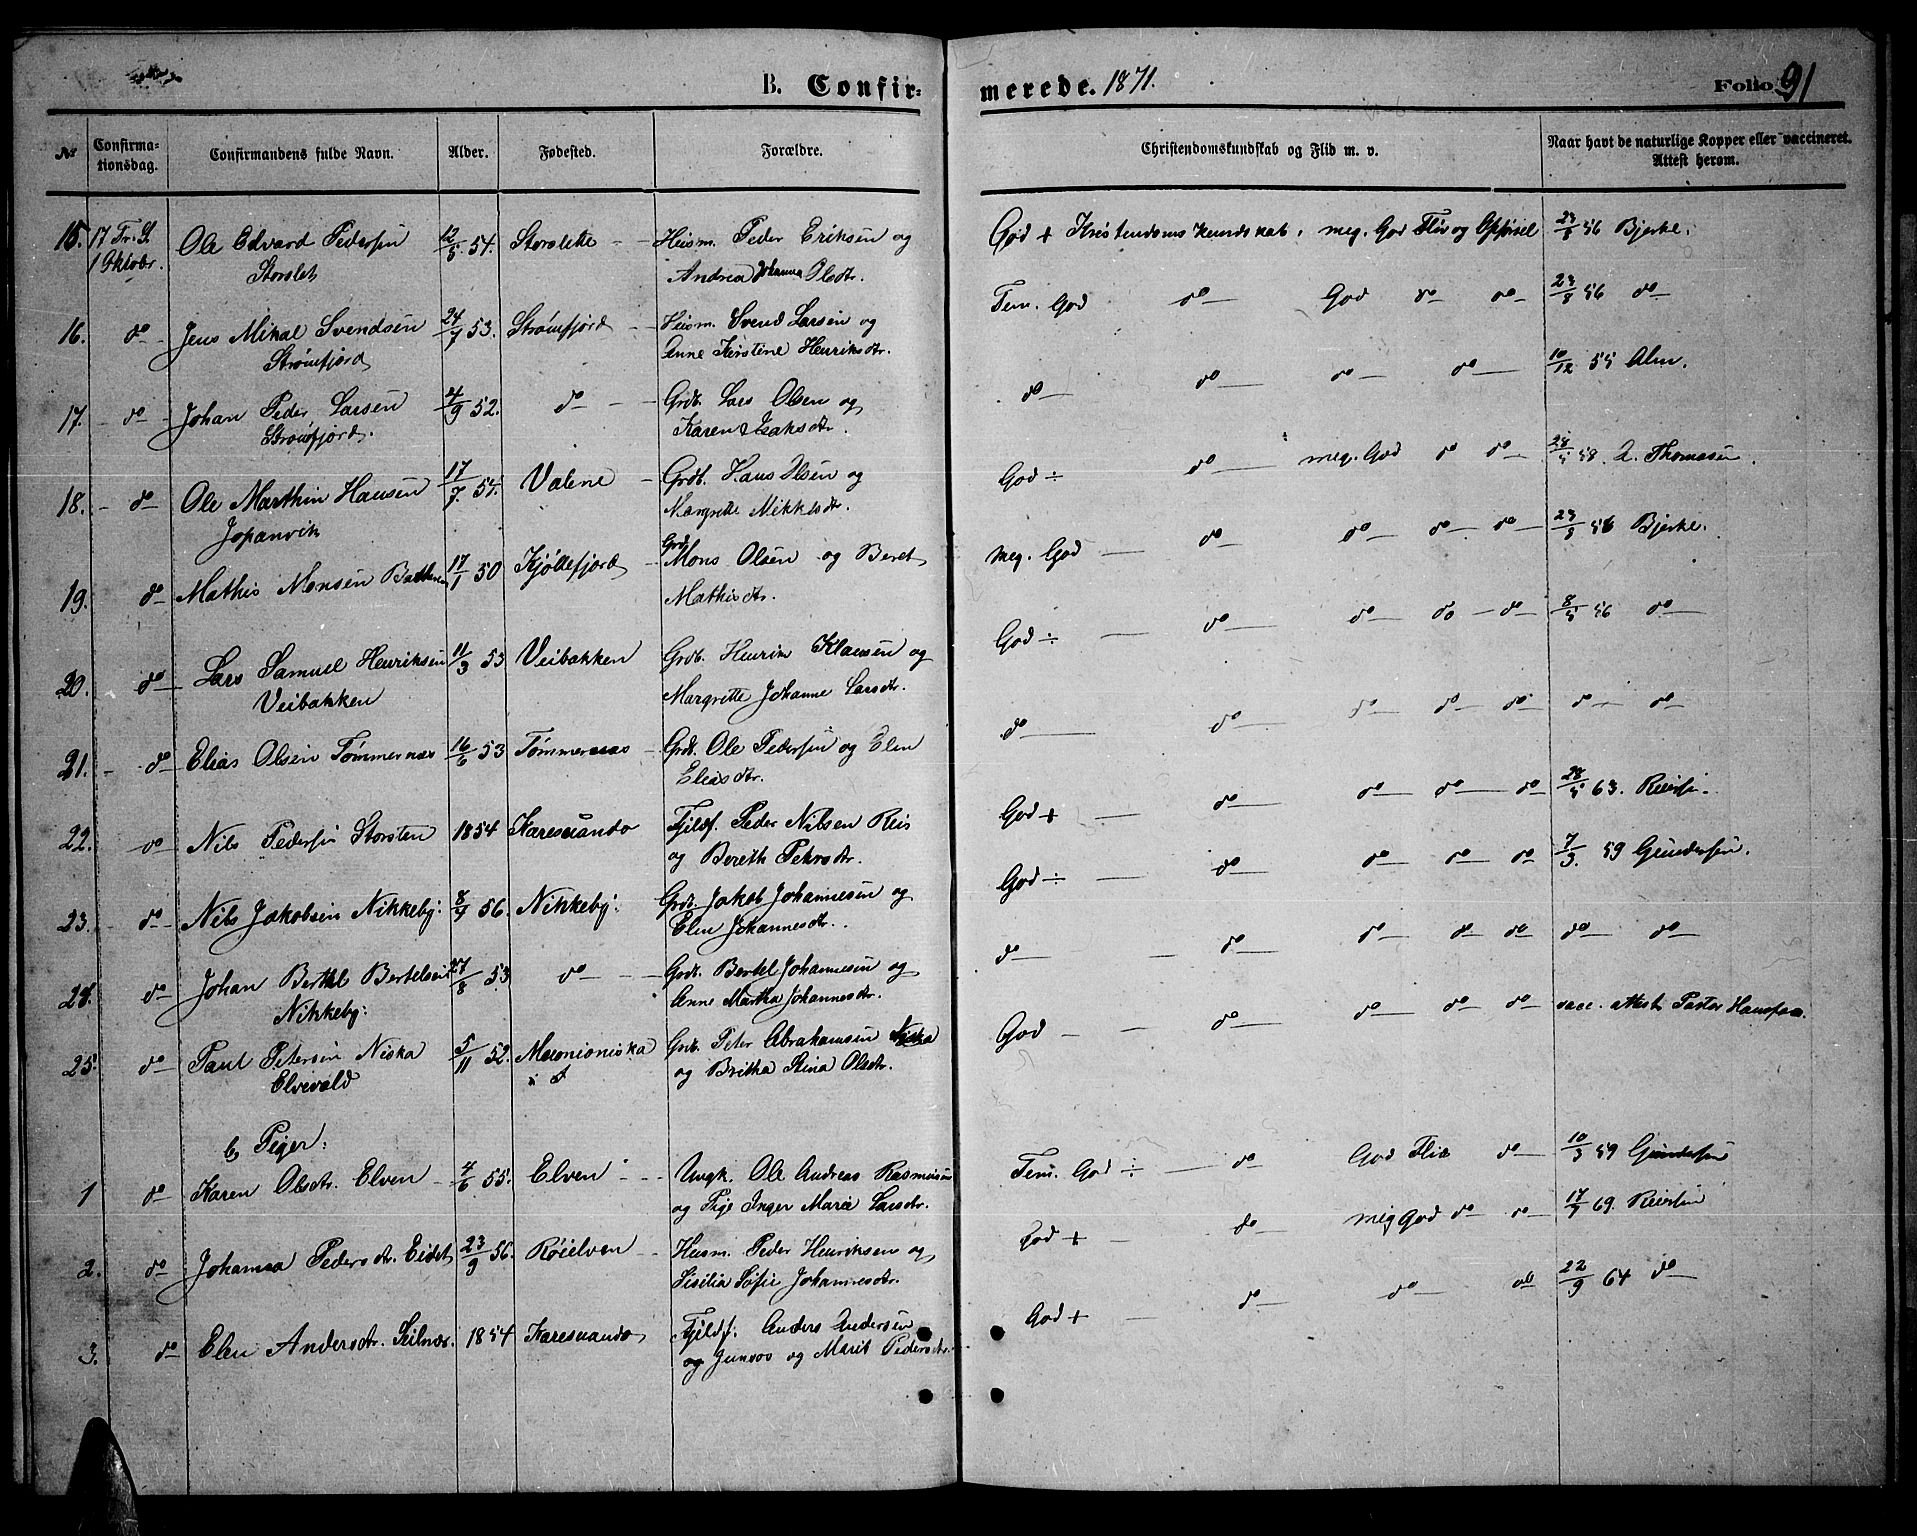 B. Confirmerede. 1871. Folio 91
No Confirmationsdag. Confirmandens fulde Navn. Alder. Fødested. Forældre. Christendomskundskab og Flid m. v. Naar havt de naturlige Kopper eller vaccineret. Attest herom.
15. 17 Tr. S. Ole Edvard Pedersen 12/5 54. Storslette Husm. Peder Eriksen og God + Kristendomskundskab. meg. God Flid og Opførsel 23/8 56 Bjerke.
1 Oktobr. Storslet Andrea Johanna Olsdtr.
16. do Jens Mikal Svendsen 24/7 53. Strømfjord Husm. Svend Larsen og Tem. God do God do do 23/8 56 do
Strømfjord Anne Kirstine Henriksdtr.
17. do Johan Peder Larsen 4/9 52. do Grdb. Lars Olsen og do do do do 10/12 55 Alm.
Strømfjord. Karen Isaksdtr.
18. do Ole Marthin Hansen 17/7. 54. Valene Grdb. Hans Olsen og God ÷ do meg. God do do 28/5 58. A. Thomasen.
Margrette Mikkelsdtr.
19. do Mathis Monsen 17/1 50 Kjøllefjord Grdb. Mons Olsen og Beret meg. God do do do do 23/8 56 Bjerke.
Mathisdtr.
20. do Lars Samuel Henriksen 11/3 53 Veibakken Grdb. Henrik Klausen og God ÷ do do do do 8/5 56 do
Veibakken Margrette Johanne Larsdtr.
21. do Elias Olsen Tømmernæs 16/6 53 Tømmernæs Grdb. Ole Pedersen og Elen do do do do do do do
Eliasdtr.
22. do Nils Pedersen Storsten 1854 Karesuando Fjeldf. Peder Nilsen Reis God + do do do do 28/5 63. Reiersen
og Bereth Pehrsdtr.
23. do Nils Jakobsen Nikkeby: 8/9 56. Nikkeby: Grdb. Jakob Johannesen og God ÷ do do do do 7/3. 59 Gundersen.
Elen Johannesdtr.
24. do Johan Berthel Bertelsen 27/8 53 do Grdb. Bertel Johannesen og do do do do do do do
Nikkeby: Anne Martha Johannesdtr.
25. do Paul Petersen Niska 5/11 52. Muonioniska Grdb. Peter Abrahamsen Niska God do do do do vacc. attest Pastor
Elvevold og Britha Stina Olsdtr.
b, Piger:
1 do Karen Olsdtr. Elven 4/6 55. Elven Ungk. Ole Andreas Rasmussen Tem. God ÷ do God Flid do 10/3 59 Gundersen
og Pige Inger Marie Larsdtr.
2. do Johanna Pedersdtr. Eidet 23/9 56. Røielven Husm. Peder Henriksen og God + do meg God do do 17/9 69. Reiersen
Sisilia Sofie Johannesdtr.
3. do Elen Andersdtr. 1854 Karesuando Fjeldf. Anders Andersen God + do do do 22/9 64 do
og Marit Pedersdtr.